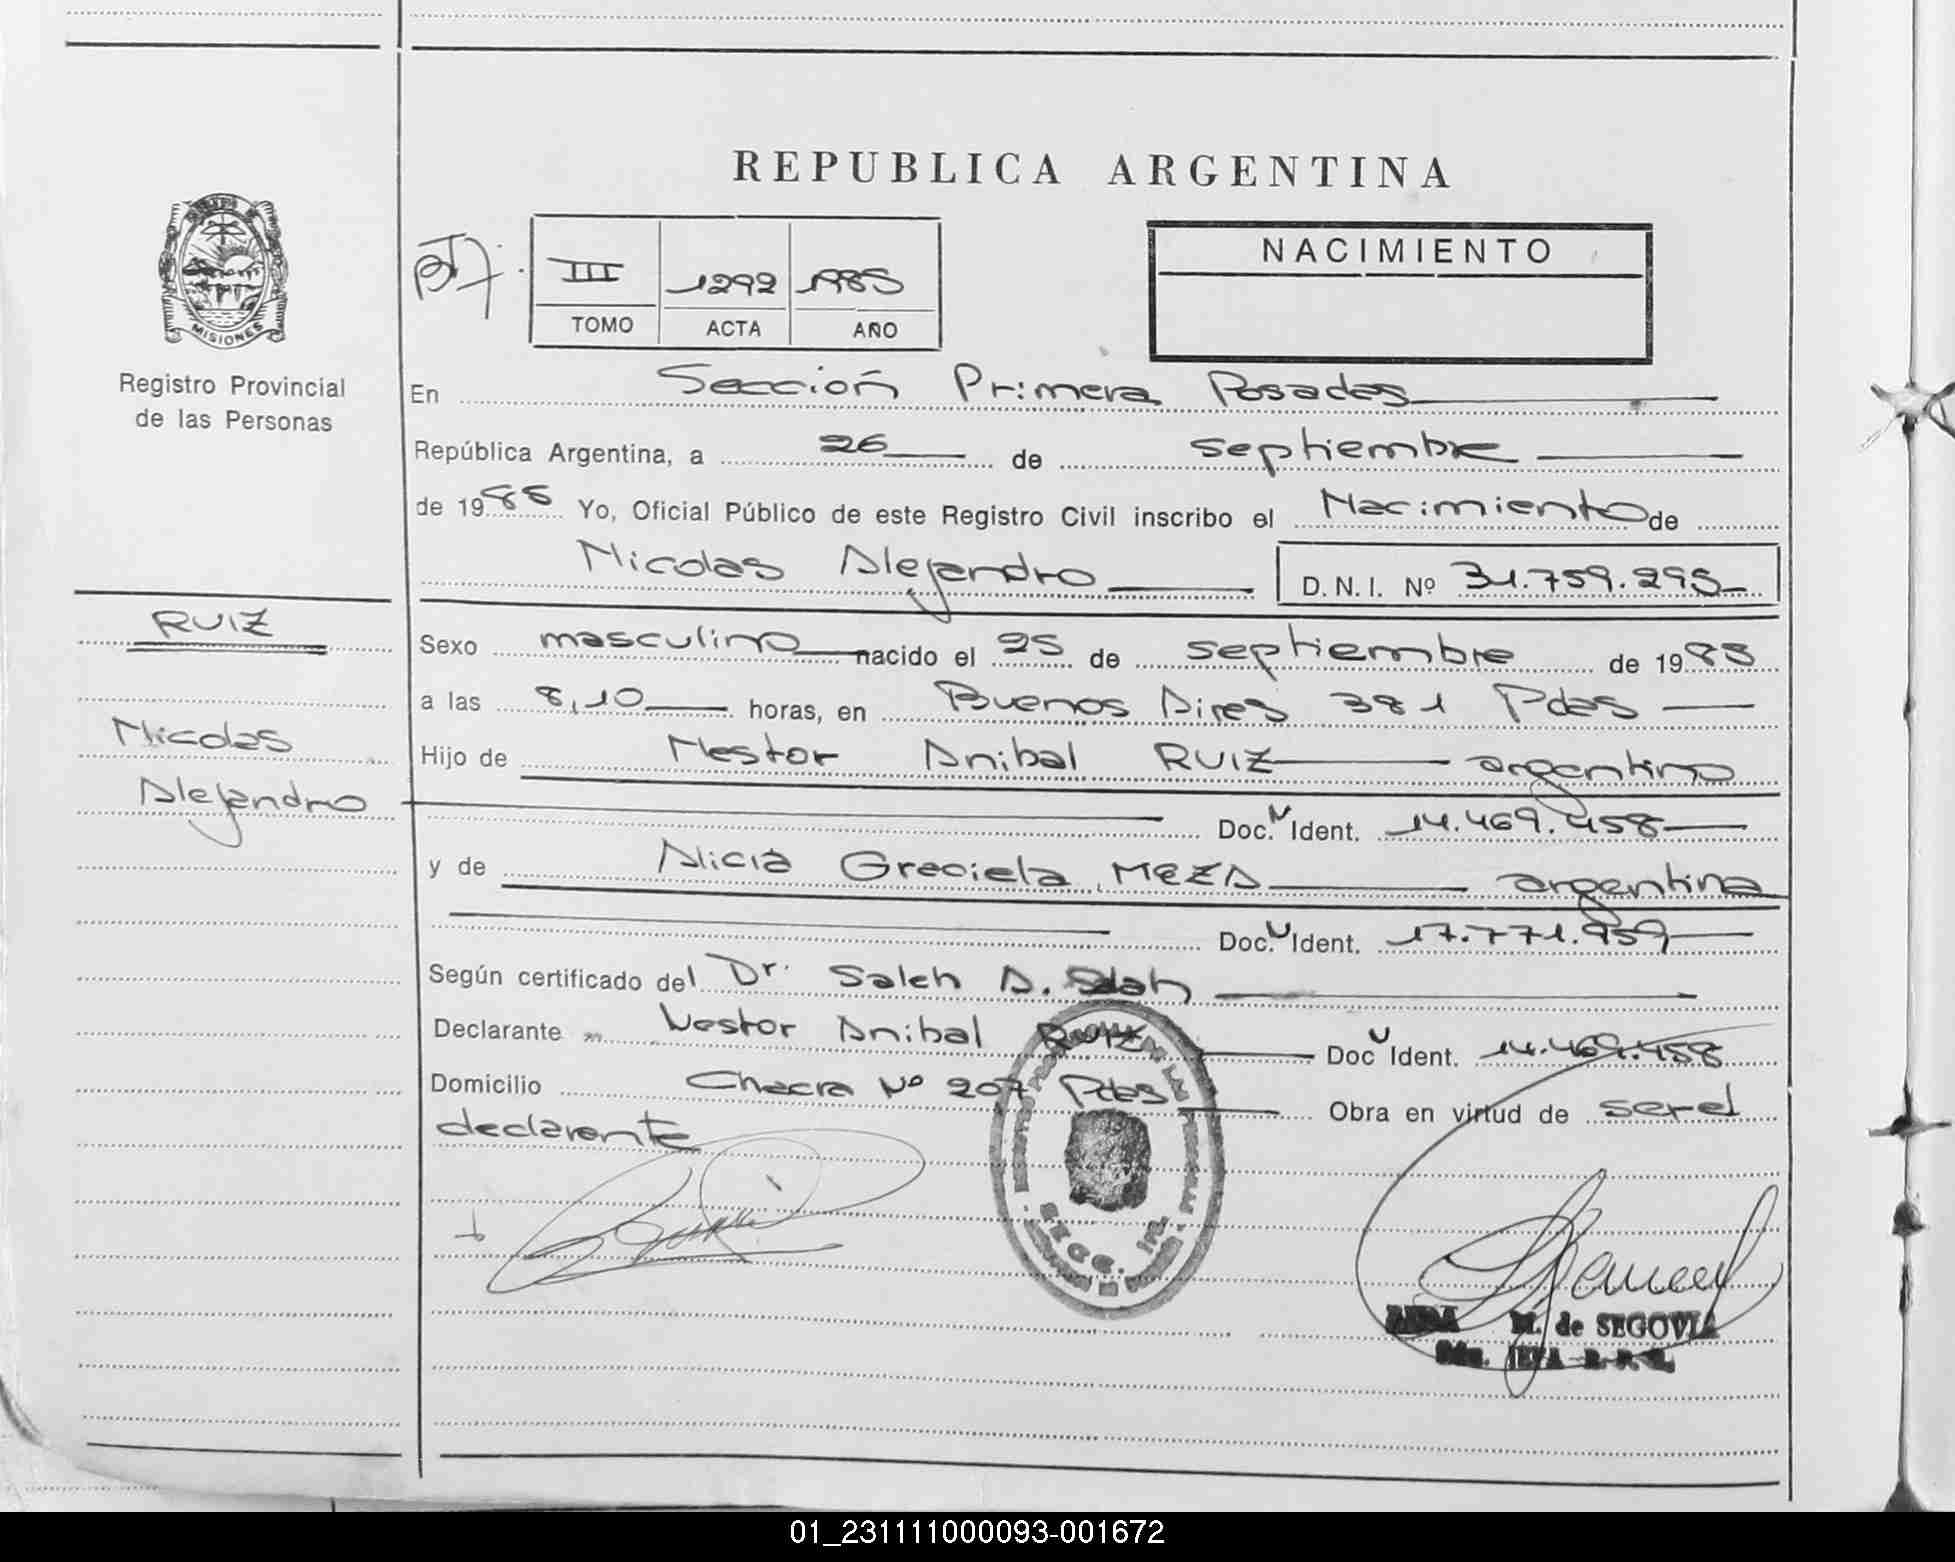 REPUBLICA ARGENTINA
MISIONES
Registro Provincial
de las Personas
III 1292 1985
TOMO ACTA AÑO
NACIMIENTO
En Sección Primera Posadas
República Argentina, a 26 de septiembre
de 1985 Yo, Oficial Público de este Registro Civil inscribo el Nacimiento de
Nicolas Alejandro D.N.I. Nº 31.759.295
RUIZ
Nicolas
Alejandro
Sexo masculino nacido el 25 de septiembre de 1985
a las 8,10 horas, en Buenos Aires 381 Pdas
Hijo de Nestor Anibal RUIZ argentino
Doc. N Ident. 14.469.458
y de Alicia Graciela MEZA argentina
Doc. N Ident. 17.771.959
Según certificado del Dr. Saleh A. Salah
Declarante Nestor Anibal RUIZ Doc N Ident. 14.469.458
Domicilio Chacra Nº 207 Pdas Obra en virtud de ser el
declarante
SECC. 1ra.
AIDA M. de SEGOVIA
01_231111000093-001672